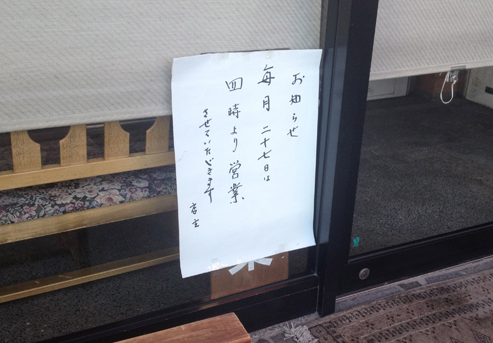 お知らせ
毎月二十七日は
四時より営業
させていただきます
店主